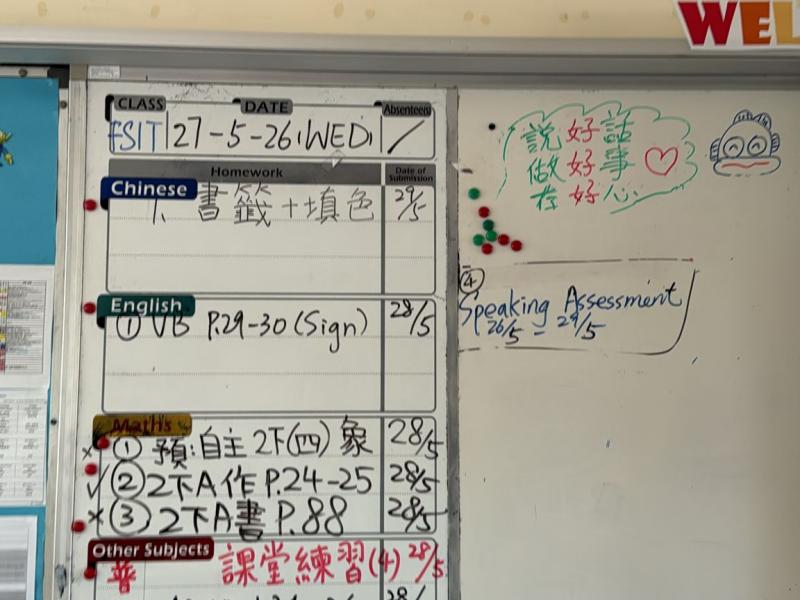 WEL
CLASS DATE Absentees
27-5-26 (WED) /
Homework Date of Submission
Chinese
1. 書籤+填色 29/5
English
① VB P.29-30 (Sign) 28/5
Maths
× ① 預:自主2下(四)象 28/5
✓ ② 2下A作 P.24-25 28/5
× ③ 2下A書 P.88 28/5
Other Subjects
普 課堂練習(4) 28/5
28/
說好話
做好事
存好心
④
Speaking Assessment
26/5 - 29/5